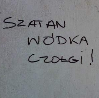 SZATAN
WÓDKA
CZOŁGI!